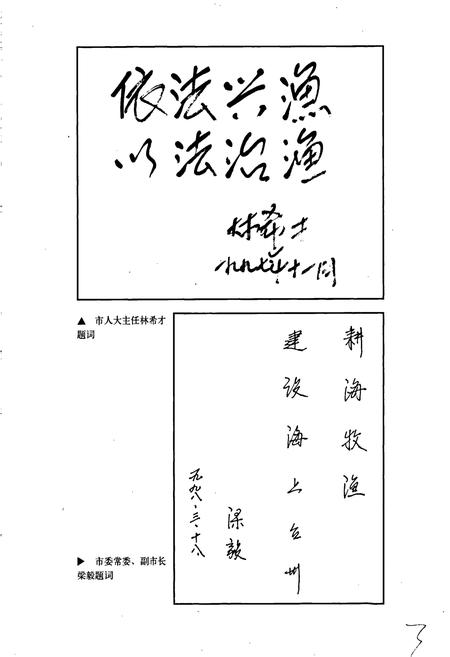 依法兴渔
以法治渔
林希才
一九九七年十一月
▲ 市人大主任林希才
题词
耕海牧渔
建设海上台州
梁毅
一九九八·三·十八
▶ 市委常委、副市长
梁毅题词
3